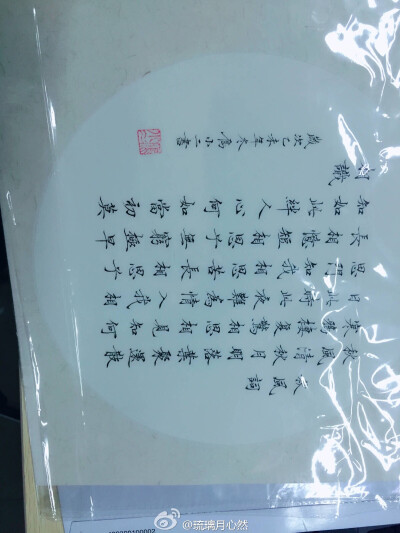 秋風詞
秋風清秋月明落葉聚還散
寒鴉棲復驚相思相見知何
日此時此夜難為情入我相
思門知我相思苦長相思兮
長相憶短相思兮無窮極早
知如此絆人心何如當初莫
相識
歲次乙未年冬 小二書
@琉璃月心然